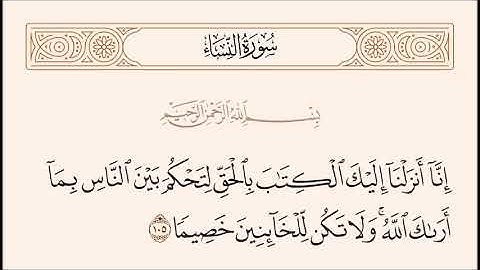 سُورَةُ النِّسَاءِ
بِسْمِ اللَّهِ الرَّحْمَٰنِ الرَّحِيمِ
إِنَّآ أَنزَلْنَآ إِلَيْكَ ٱلْكِتَٰبَ بِٱلْحَقِّ لِتَحْكُمَ بَيْنَ ٱلنَّاسِ بِمَآ
أَرَىٰكَ ٱللَّهُ ۚ وَلَا تَكُن لِّلْخَآئِنِينَ خَصِيمًا ١٠٥